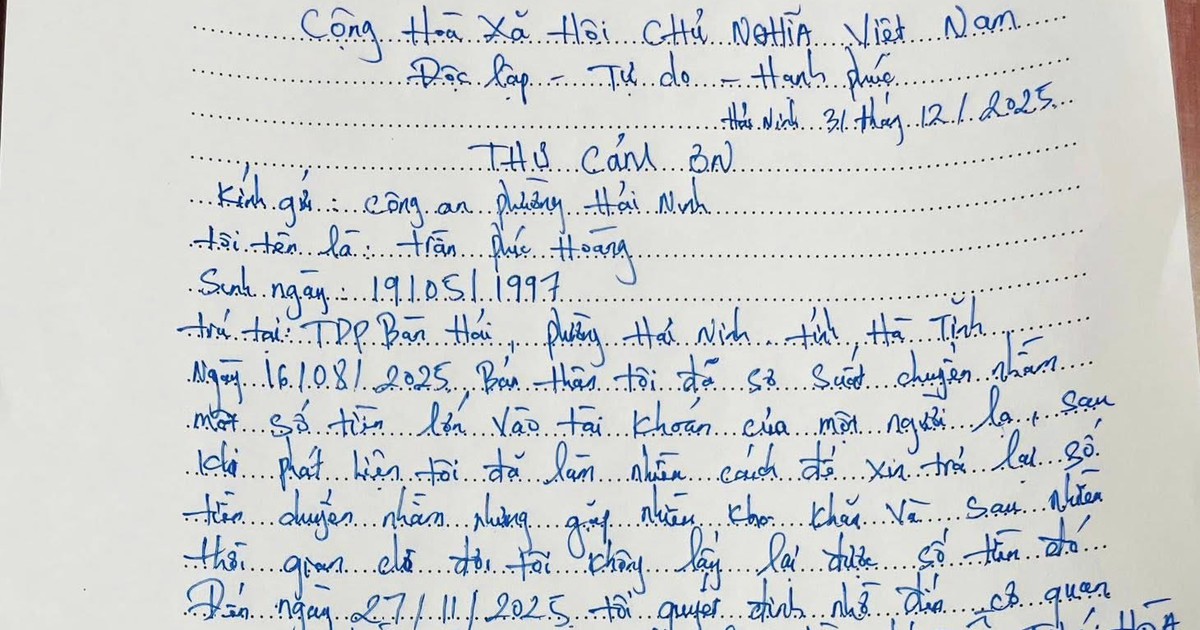 Cộng Hoà Xã Hội CHỦ NGHĨA Việt Nam
Độc lập - Tự do - Hạnh phúc
Hải Ninh 31 tháng 12/2025
THƯ CẢM ƠN
Kính gửi: công an phường Hải Ninh
tôi tên là: trần phúc Hoàng
Sinh ngày: 19/05/1997
trú tại: TDP Bàn Hải, phường Hải Ninh tỉnh Hà Tĩnh
Ngày 16/08/2025, Bản thân tôi đã sơ suất chuyển nhầm
một số tiền lớn vào tài khoản của một người lạ, sau
khi phát hiện tôi đã làm nhiều cách để xin trả lại số
tiền chuyển nhầm nhưng gặp nhiều khó khăn và sau nhiều
thời gian chờ đợi tôi không lấy lại được số tiền đó
Đến ngày 27/11/2025 tôi quyết định nhờ đến cơ quan
HÒA